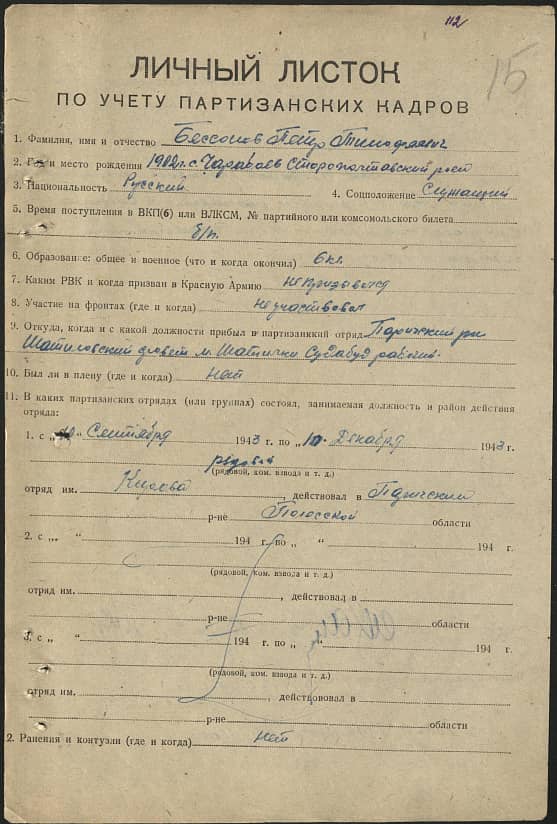 112
15
ЛИЧНЫЙ ЛИСТОК
ПО УЧЕТУ ПАРТИЗАНСКИХ КАДРОВ
1. Фамилия, имя и отчество Бессонов Петр Тимофеевич
2. Год и место рождения 1902 г. с.
3. Национальность Русский 4. Соцположение Служащий
5. Время поступления в ВКП(б) или ВЛКСМ, № партийного или комсомольского билета
б/п.
6. Образование: общее и военное (что и когда окончил) 6 кл.
7. Каким РВК и когда призван в Красную Армию не призывался
8. Участие на фронтах (где и когда) не участвовал
9. Откуда, когда и с какой должности прибыл в партизанский отряд
м. рабочий
10. Был ли в плену (где и когда) нет
11. В каких партизанских отрядах (или группах) состоял, занимаемая должность и район действия
отряда:
1. с „ “ Сентября 1943 г. по „10“ Декабря 1943 г.
рядовой
(рядовой, ком. взвода и т. д.)
отряд им. Кирова, действовал в Паричском
р-не Полесской области
2. с „ “ 194 г. по „ “ 194 г.
(рядовой, ком. взвода и т. д.)
отряд им. , действовал в
р-не области
3. с „ “ 194 г. по „ “ 194 г.
(рядовой, ком. взвода и т. д.)
отряд им. , действовал в
р-не области
2. Ранения и контузии (где и когда) нет